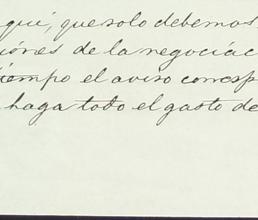 qui, que solo debemos
iónes de la negociác
iempo el aviso corresp
haga todo el gasto de